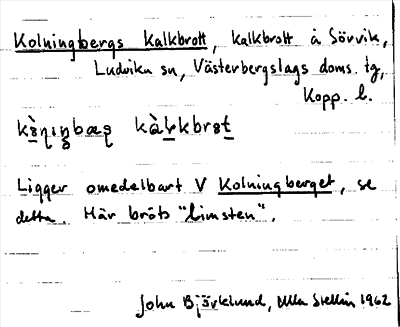 Kolningbergs kalkbrott, kalkbrott å Sörvik,
Ludvika sn, Västerbergslags doms. tg,
Kopp. l.
Ligger omedelbart V Kolningberget, se
detta. Här bröts "limsten".
John Björklund, 1962